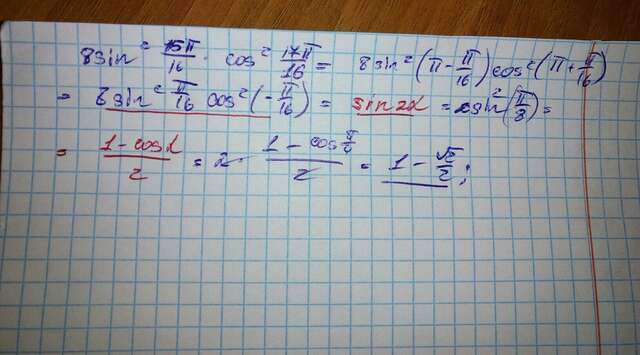 8sin² 15π/16 · cos² 17π/16 = 8sin²(π - π/16)cos²(π + π/16)
= 8sin² π/16 cos²(-π/16) = sin2α = 2sin²(π/8) =
= (1 - cosα)/2 = 2 · (1 - cos π/4)/2 = 1 - √2/2;